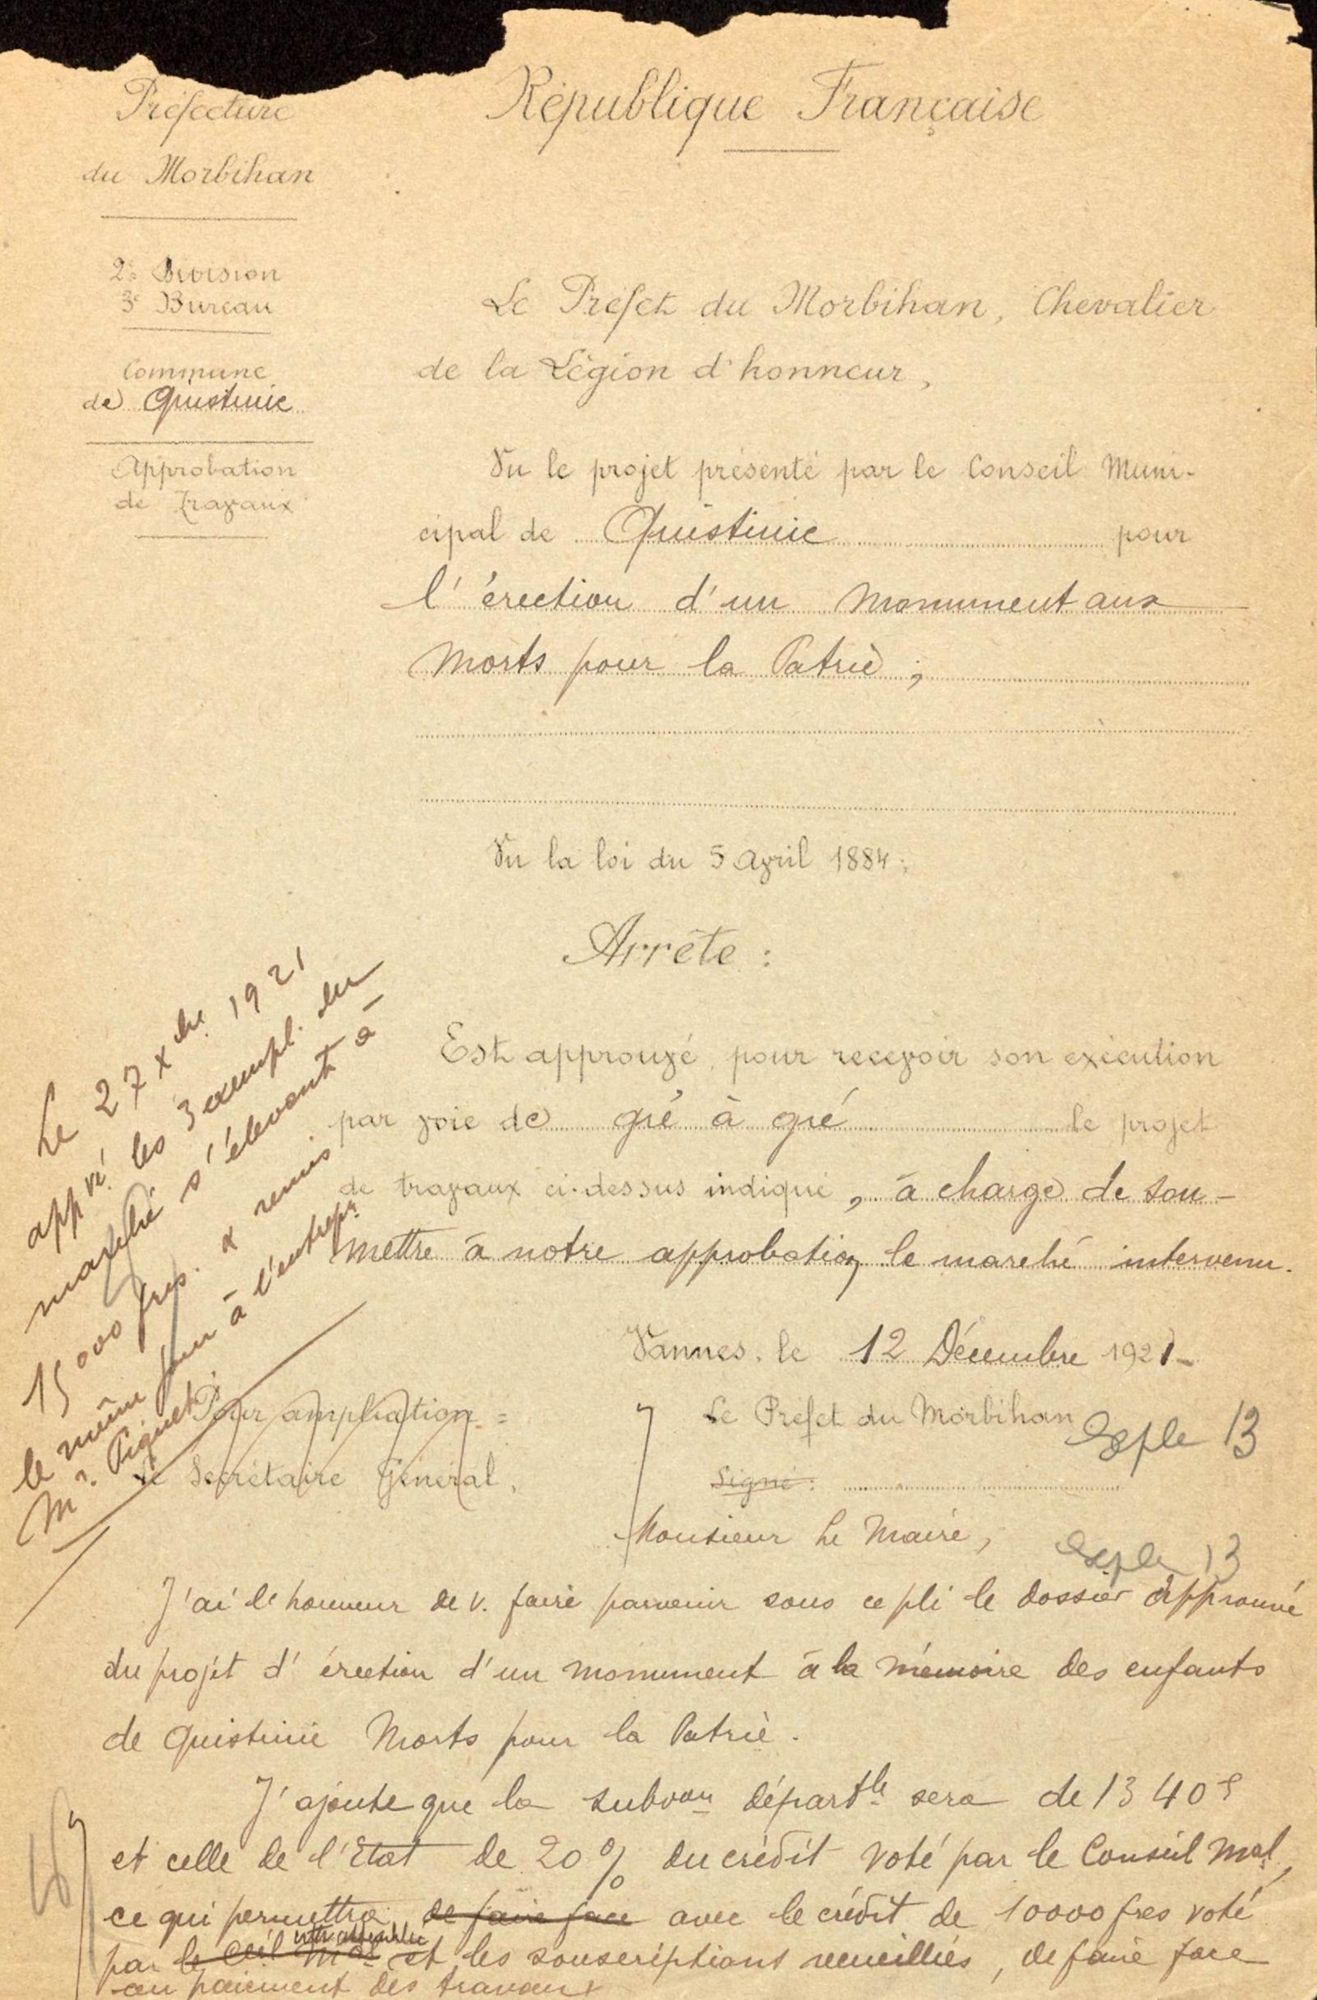 Préfecture
du Morbihan
2e Division
3e Bureau
Commune
de Quistinic
Approbation
de Travaux
République Française
Le Préfet du Morbihan, Chevalier
de la Légion d'honneur,
Vu le projet présenté par le Conseil Muni-
cipal de Quistinic pour
l'érection d'un Monument aux
Morts pour la Patrie ;
Vu la loi du 5 Avril 1884 ;
Arrête :
Est approuvé, pour recevoir son exécution
par voie de gré à gré le projet
de travaux ci-dessus indiqué, à charge de sou-
mettre à notre approbation le marché intervenu.
Vannes, le 12 Décembre 1921
Le Préfet du Morbihan
Signé :
Pour ampliation =
Le Secrétaire Général,
Le 27 Xbre 1921
appvé les 3 exempl. du
marché s'élevant à
15000 frcs. & remis
le même jour à l'entrepr
Mr. Piquet.
13
Monsieur Le Maire,
13
J'ai l'honneur de v. faire parvenir sous ce pli le dossier approuvé
du projet d'érection d'un monument à la mémoire des enfants
de Quistinic Morts pour la Patrie.
J'ajoute que la subvon départle sera de 1340f
et celle de l'Etat de 20 % du crédit voté par le Conseil Mal,
ce qui permettra de faire face avec le crédit de 10000 frcs voté
par le Ceil Mal votre assemblée et les souscriptions recueillies, de faire face
au paiement des travaux